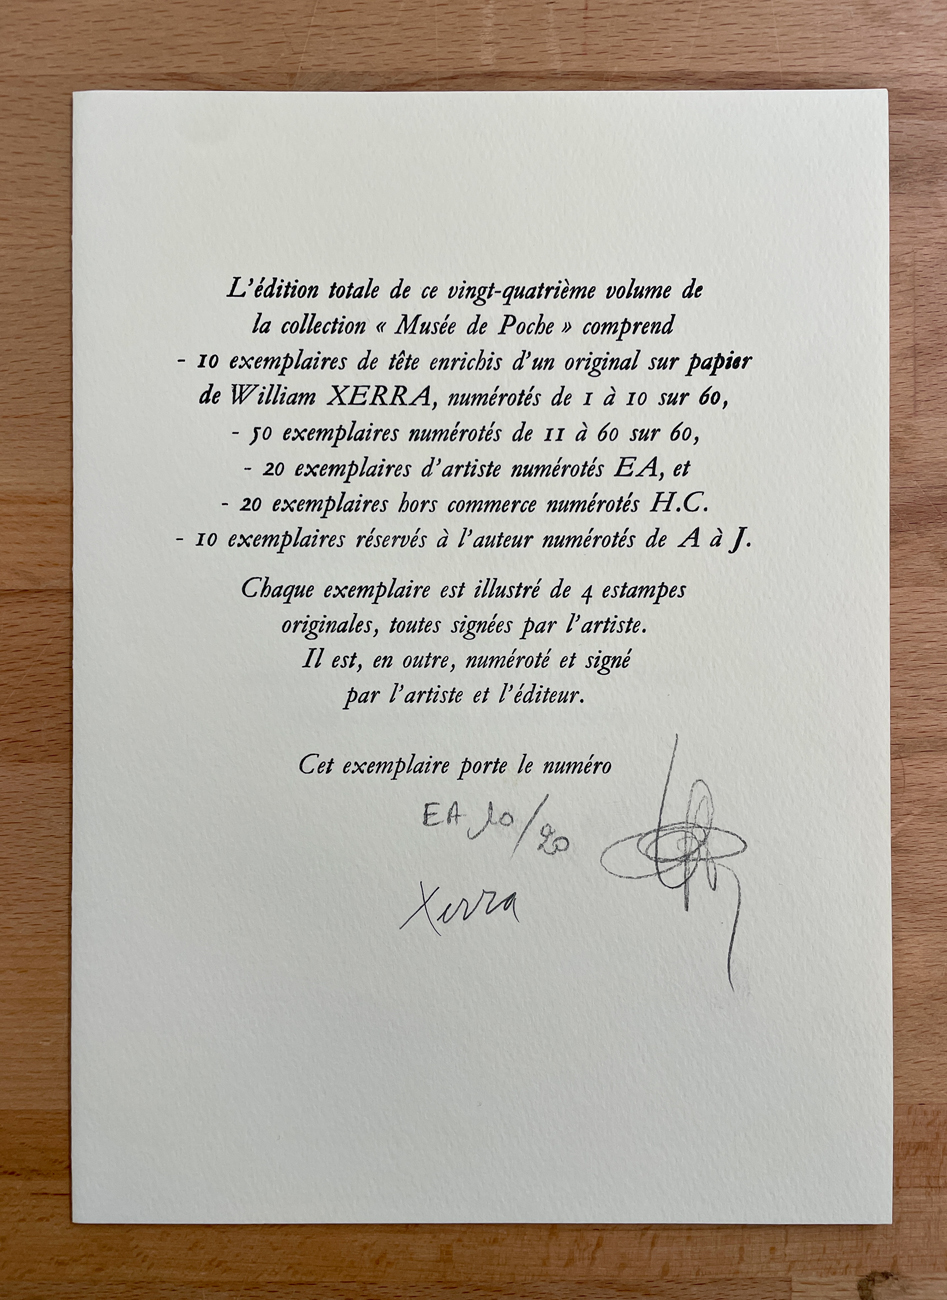 L'édition totale de ce vingt-quatrième volume de
la collection « Musée de Poche » comprend
- 10 exemplaires de tête enrichis d'un original sur papier
de William XERRA, numérotés de 1 à 10 sur 60,
- 50 exemplaires numérotés de 11 à 60 sur 60,
- 20 exemplaires d'artiste numérotés EA, et
- 20 exemplaires hors commerce numérotés H.C.
- 10 exemplaires réservés à l'auteur numérotés de A à J.
Chaque exemplaire est illustré de 4 estampes
originales, toutes signées par l'artiste.
Il est, en outre, numéroté et signé
par l'artiste et l'éditeur.
Cet exemplaire porte le numéro
EA 10/20
Xerra